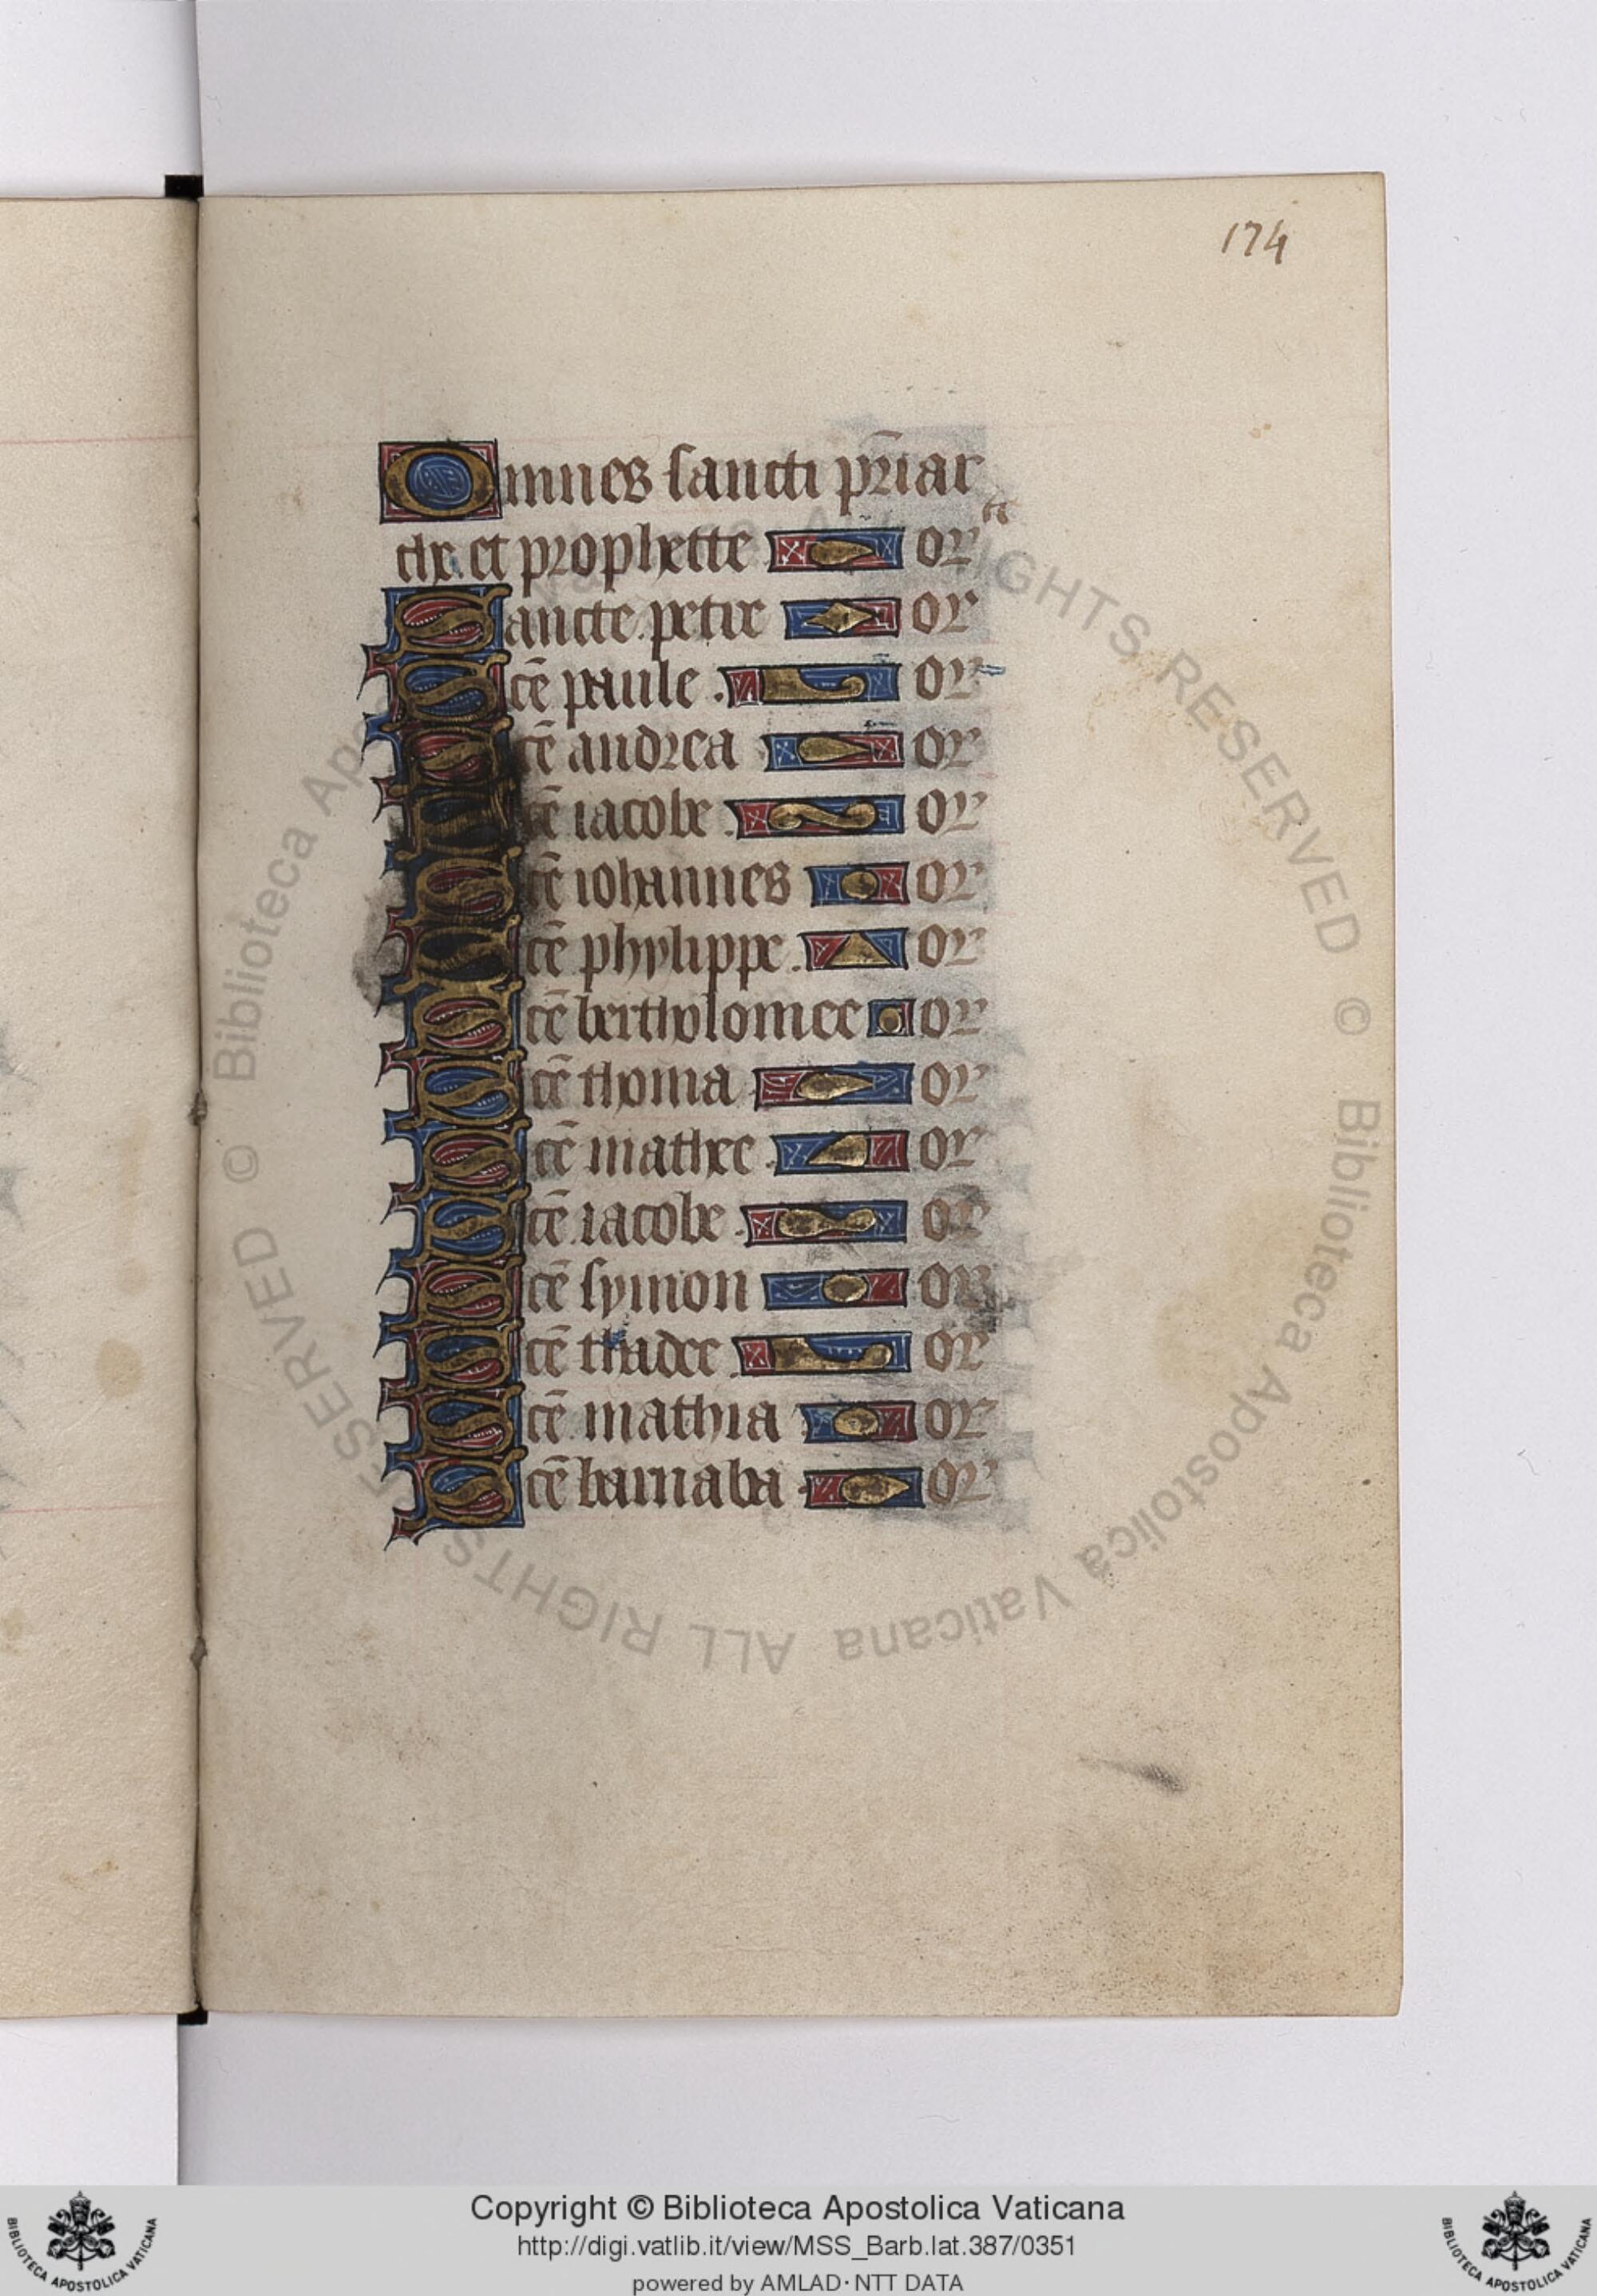 174
Omnes sancti pr̄iar
che et prophette or
Sancte petre or
Scē paule . or
Scē andrea or
Scē iacobe . or
Scē iohannes or
Scē phylippe . or
Scē bertholomee or
Scē thoma or
Scē mathee . or
Scē iacobe . or
Scē symon or
Scē thadee . or
Scē mathia or
Scē barnaba . or
© Biblioteca Apostolica Vaticana ALL RIGHTS RESERVED © Biblioteca Apostolica Vaticana ALL RIGHTS RESERVED
Copyright © Biblioteca Apostolica Vaticana
http://digi.vatlib.it/view/MSS_Barb.lat.387/0351
powered by AMLAD·NTT DATA
BIBLIOTECA APOSTOLICA VATICANA
BIBLIOTECA APOSTOLICA VATICANA